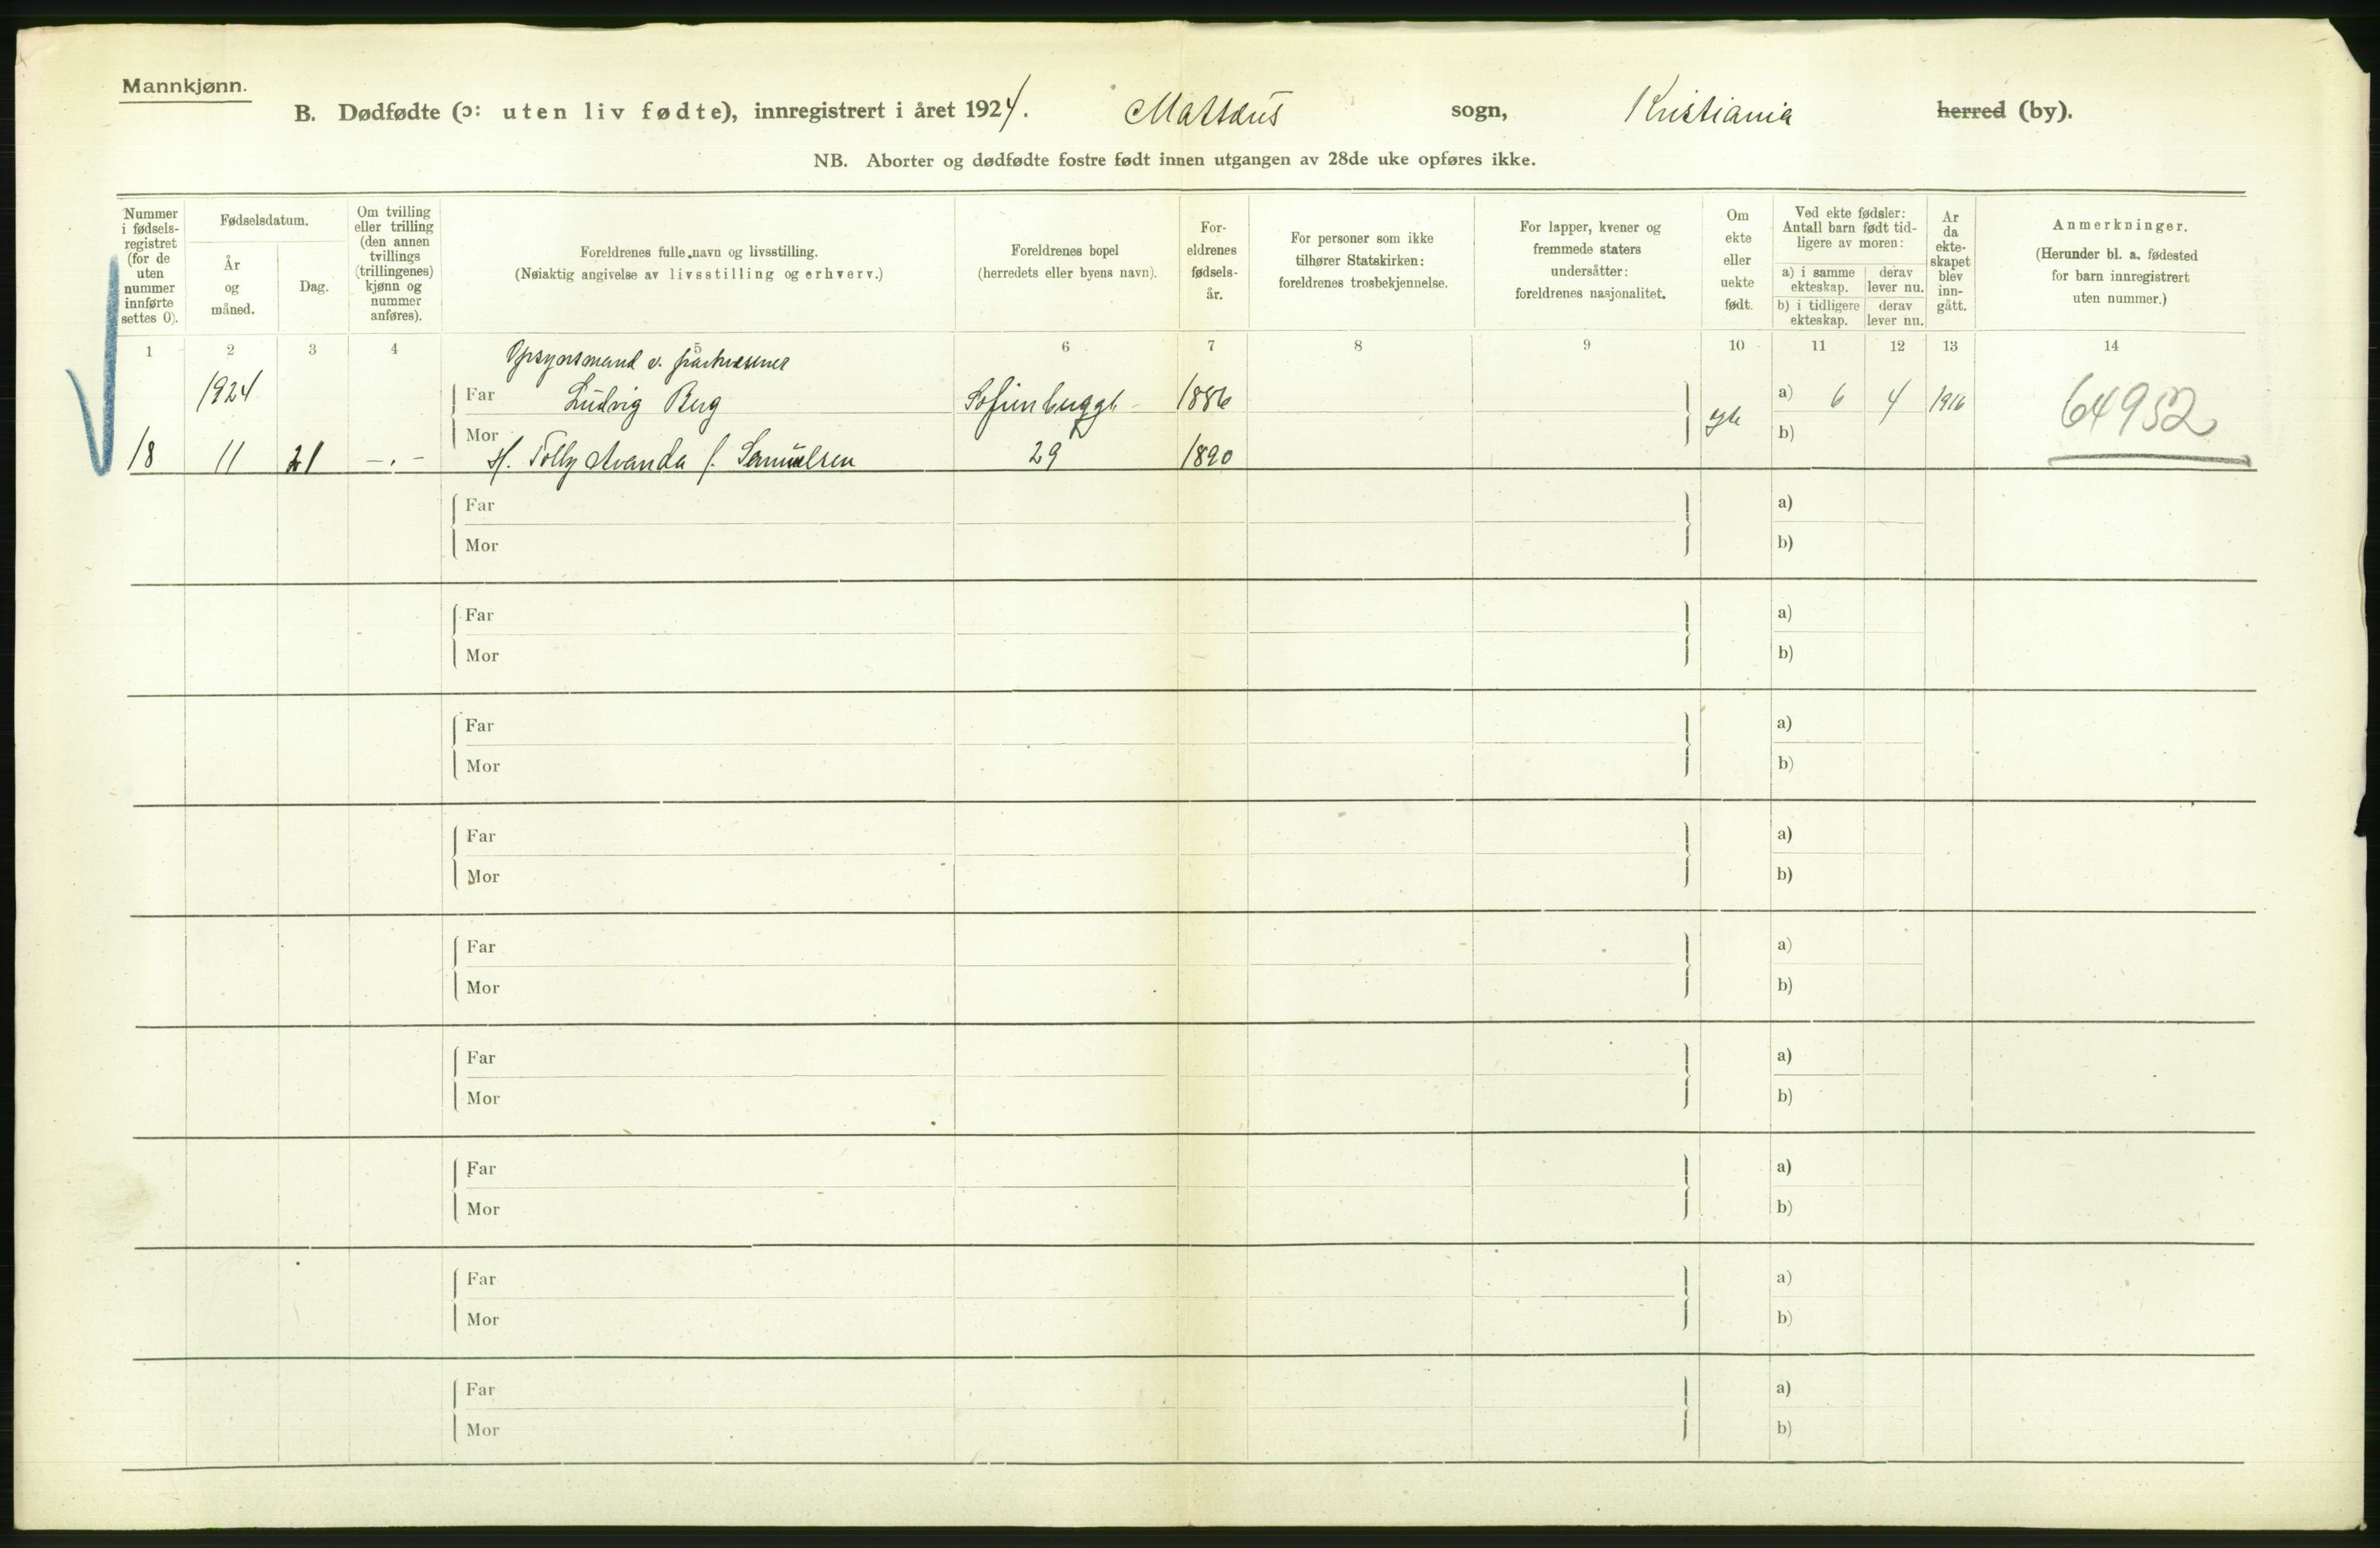 Mannkjønn.
B. Dødfødte (ɔ: uten liv fødte), innregistrert i året 1924. Mattæus sogn, Kristiania herred (by).
NB. Aborter og dødfødte fostre født innen utgangen av 28de uke opføres ikke.
Nummer i fødsels-registret (for de uten nummer innførte settes 0).
Fødselsdatum.
År og måned.
Dag.
Om tvilling eller trilling (den annen tvillings (trillingenes) kjønn og nummer anføres).
Foreldrenes fulle navn og livsstilling.
(Nøiaktig angivelse av livsstilling og erhverv.)
Foreldrenes bopel
(herredets eller byens navn).
For-eldrenes fødsels-år.
For personer som ikke tilhører Statskirken: foreldrenes trosbekjennelse.
For lapper, kvener og fremmede staters undersåtter: foreldrenes nasjonalitet.
Om ekte eller uekte født.
Ved ekte fødsler: Antall barn født tid-ligere av moren:
a) i samme ekteskap.
derav lever nu.
b) i tidligere ekteskap.
derav lever nu.
År da ekte-skapet blev inn-gått.
Anmerkninger.
(Herunder bl. a. fødested for barn innregistrert uten nummer.)
1 2 3 4 5 6 7 8 9 10 11 12 13 14
Opsynsmand v. parkvesenet
1924 Far Ludvig Berg Sofienberggt 1886 a) 6 4 1916 64952
Mor b)
18 11 21 — . — H. Tolly Avanda f. Samuelsen 29 1890
Far a)
Mor b)
Far a)
Mor b)
Far a)
Mor b)
Far a)
Mor b)
Far a)
Mor b)
Far a)
Mor b)
Far a)
Mor b)
Far a)
Mor b)
Far a)
Mor b)